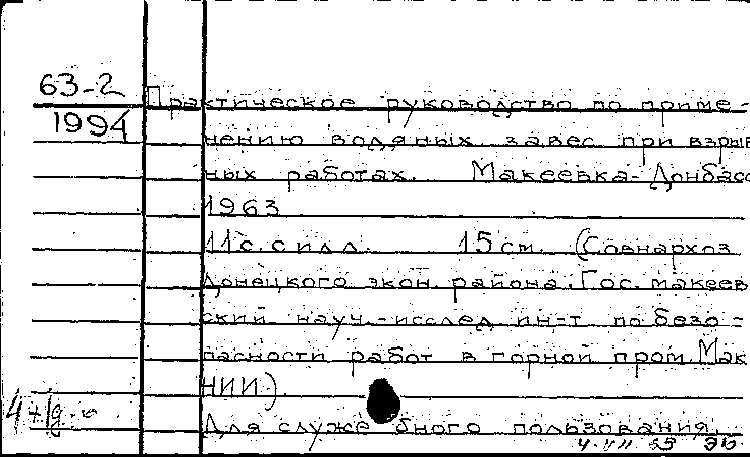 63-2
1994
Практическое руководство по приме-
нению водяных завес при взрыв
ных работах. Макеевка-Донбасс
1963
11с. с илл. 15см. (Совнархоз
Донецкого экон. района. Гос. макеев
ский науч.-исслед ин-т по безо-
пасности работ в горной пром. Мак
НИИ).
Для служебного пользования.